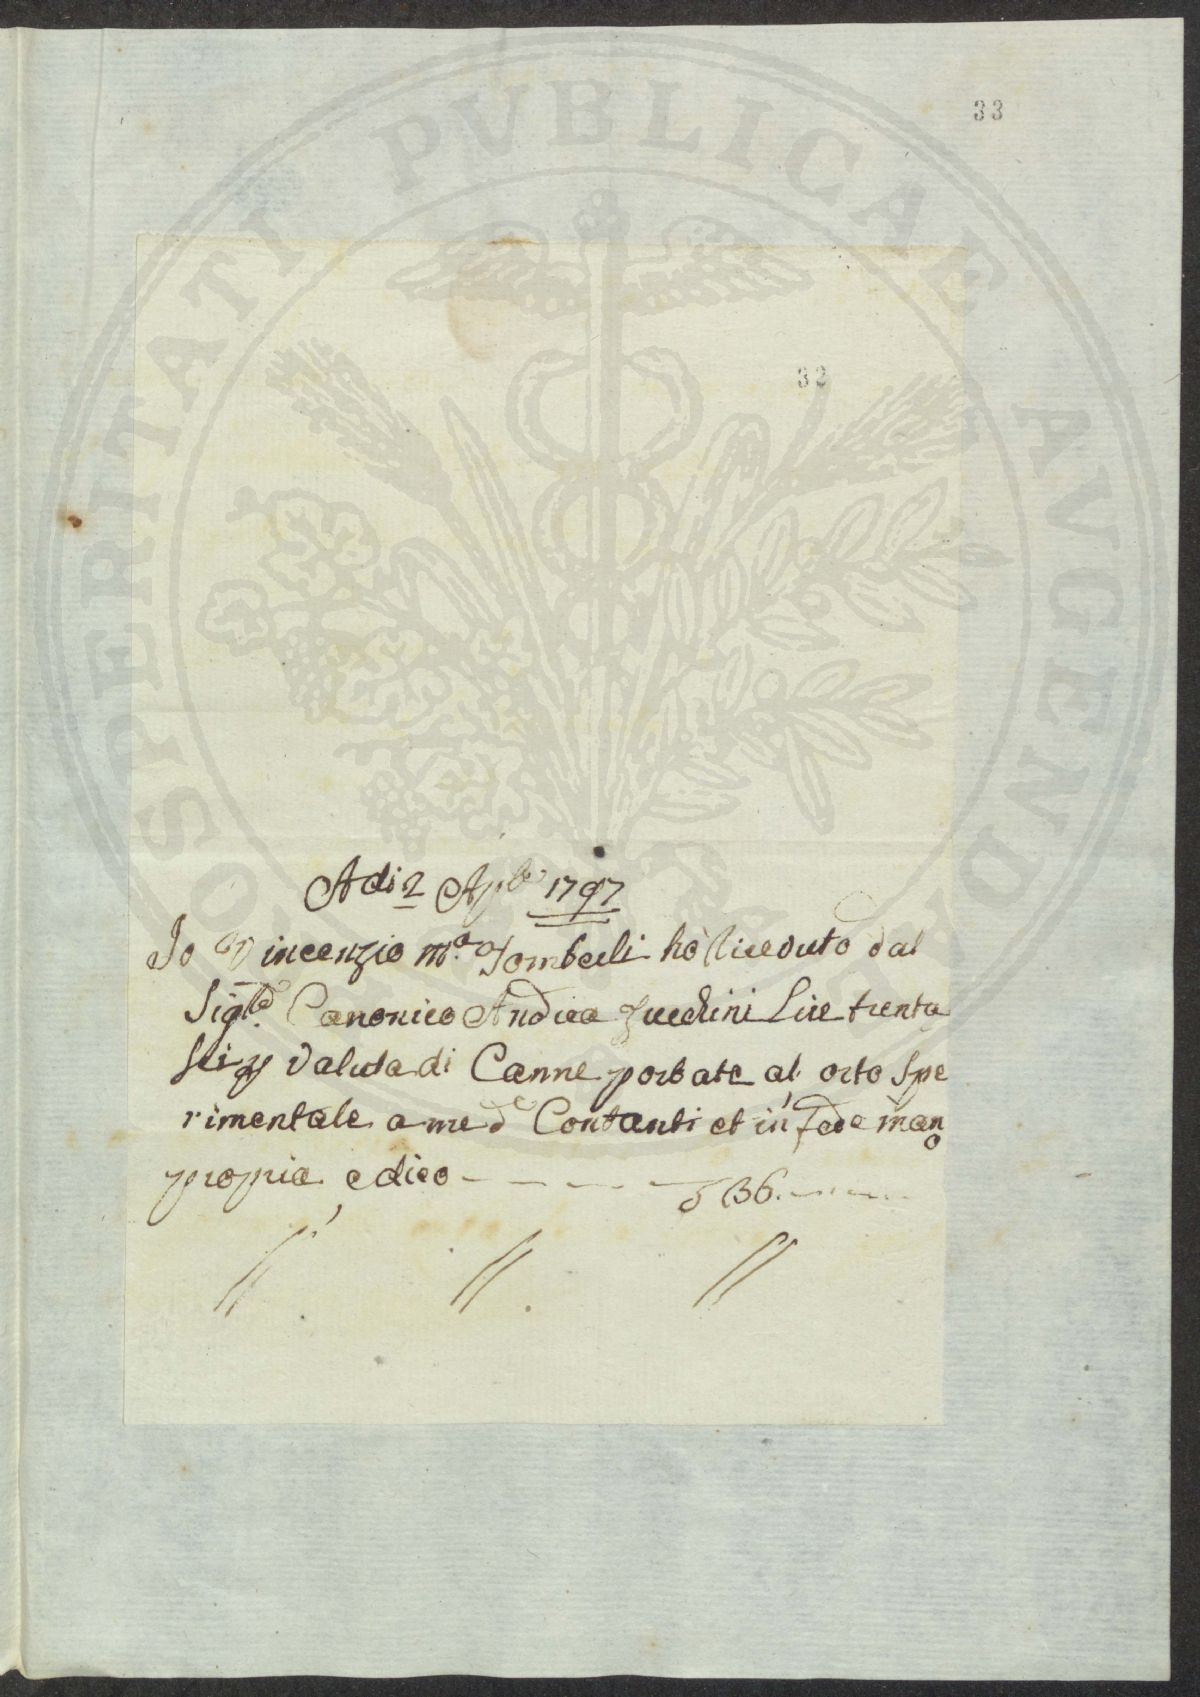 33
32
Adi 2 Aple 1797
Io Vincenzio Ma Tombeli hò Riceduto dal
Sigre Canonico Andrea Zucchini Lire trenta
sei p valuta di Canne portate al orto Spe
rimentale a me de Contanti et in fede man
o
propria e dico - - - - - 36. - - - -
// // //
PROSPERITATI PVBLICAE AVGENDAE